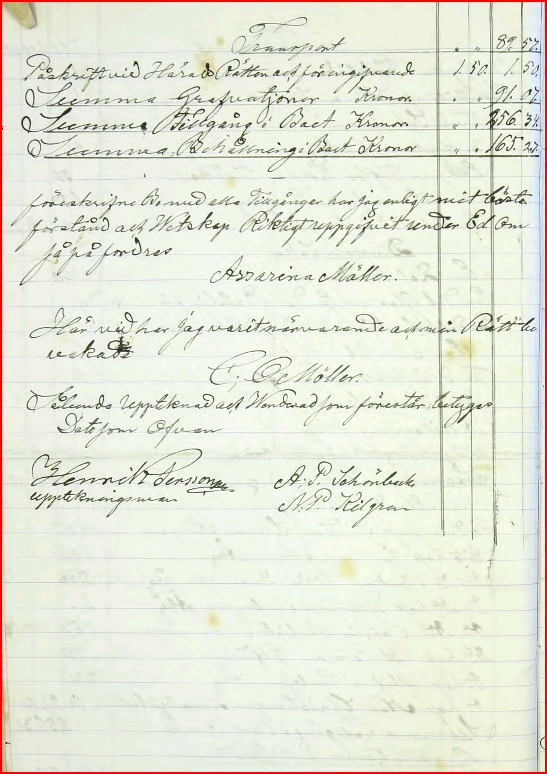 Transport " " 89. 57.
Påskrift vid Härads Rätten och för ingifvande 1. 50. 1. 50.
Summa Grafvationer Kronor " " 91. 07
Summa Tillgång i Boet Kronor " " 256. 34.
Summa Behållning i Boet Kronor " " 165. 27.
föreskrifne Bo med alla Tillgånger har jag enligt mit bästa
förstånd och Wetskap Riktigt uppgifvit under Ed om
så på fordras
Assarina Möller.
Här vid har jag varit närvarande och min Rätt be
vakads
C. O. Möller.
Således Uppteknad och Wenderad som förestår betygas
Dato som Ofvan
Henrik Persson A. P. Schönbeck
uppteckningsman N. P. Kilgren